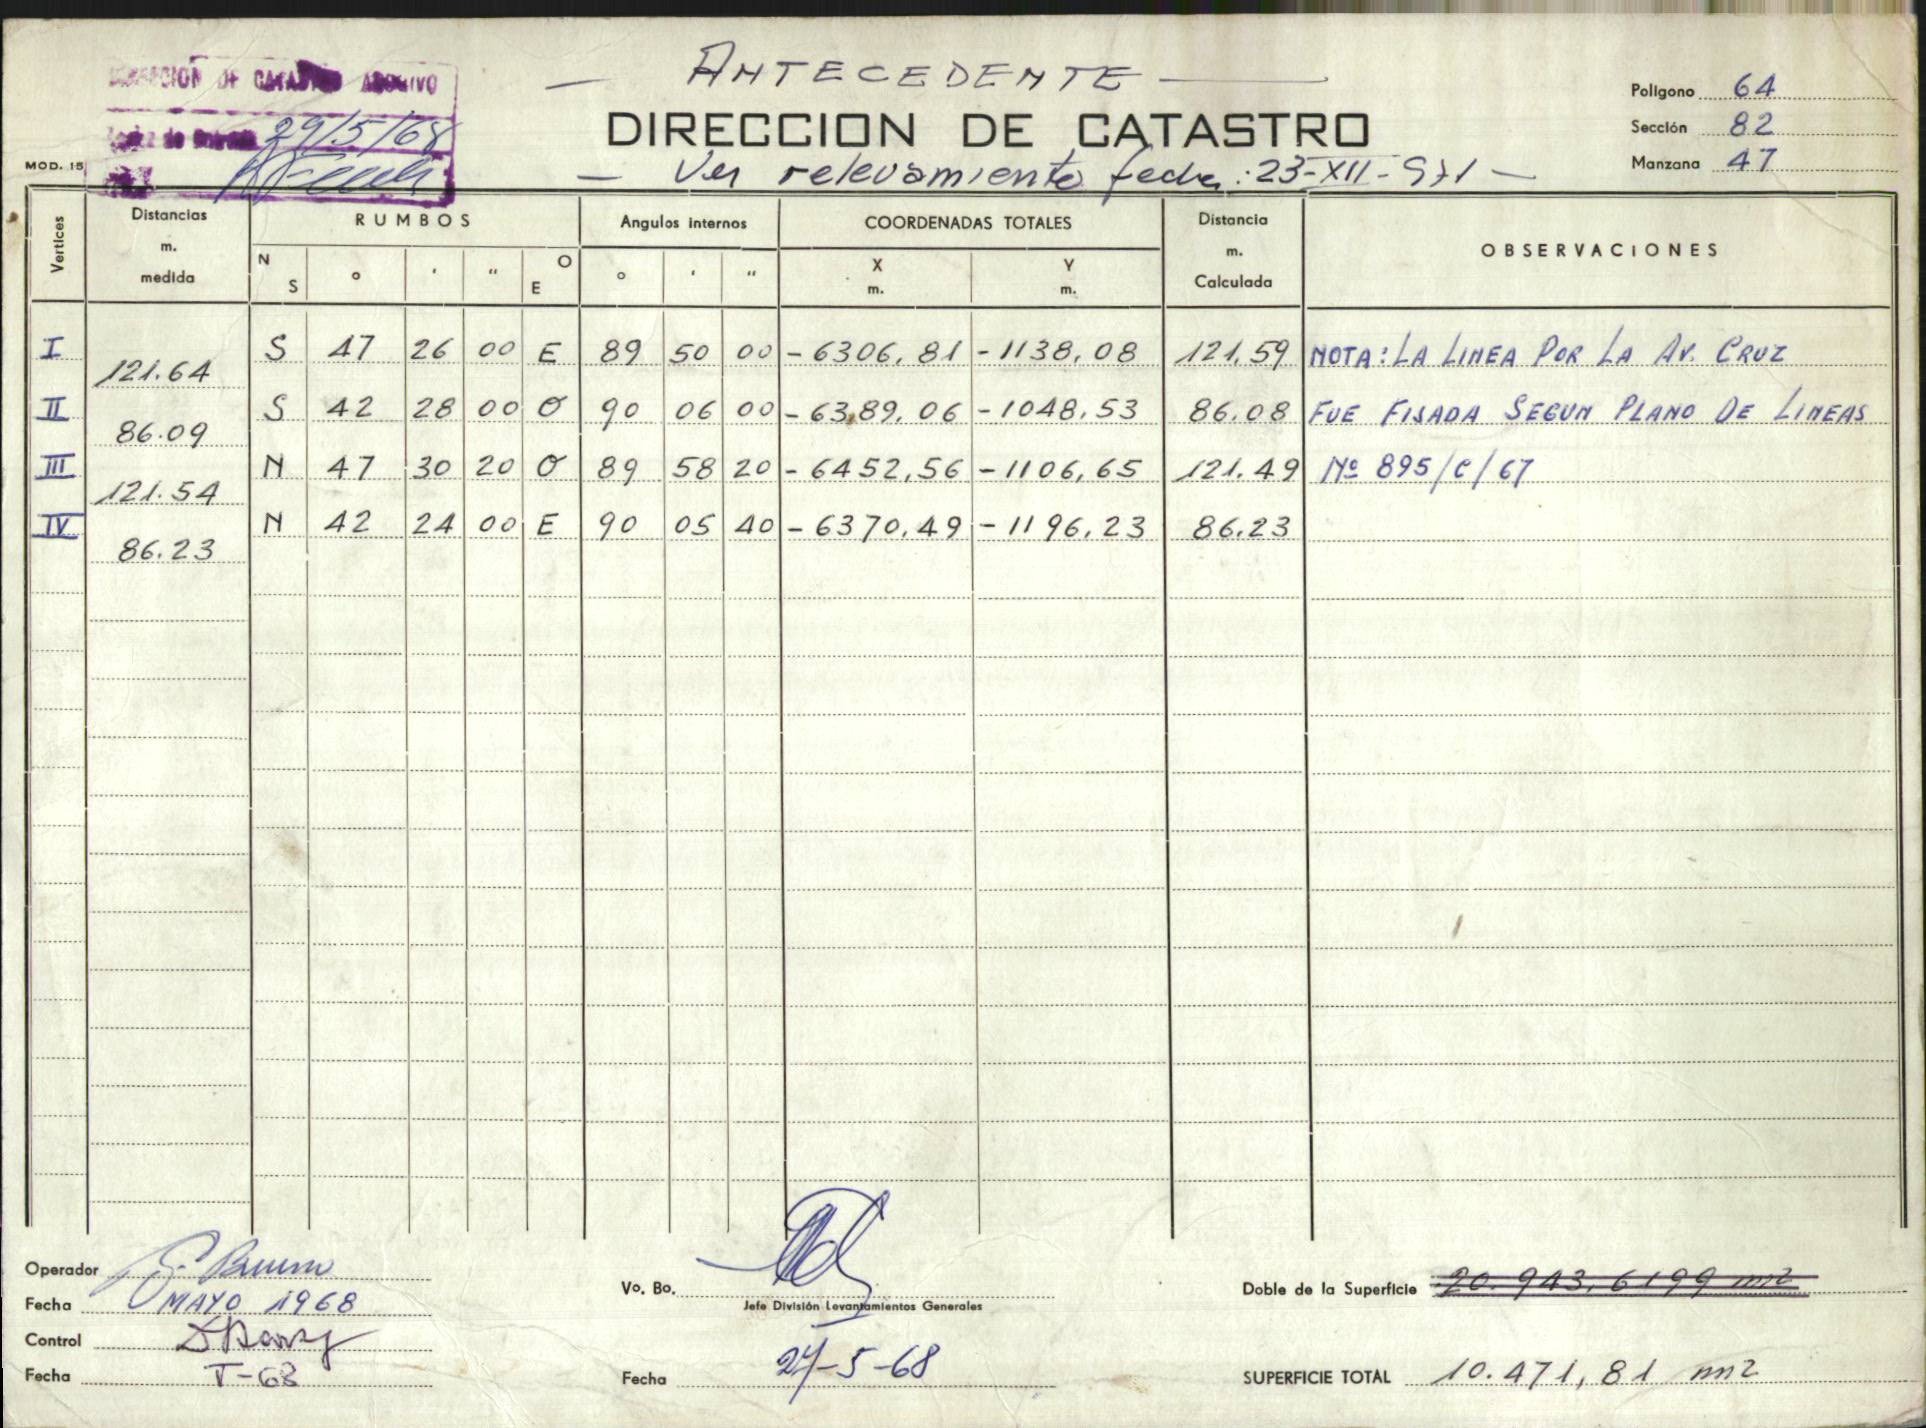 DIRECCION DE CATASTRO ARCHIVO
29/5/68
ANTECEDENTE
DIRECCION DE CATASTRO
Ver relevamiento fecha: 23-XII-971
Polígono 64
Sección 82
Manzana 47
MOD. 15
Vertices Distancias m. medida RUMBOS Angulos internos COORDENADAS TOTALES Distancia m. Calculada OBSERVACIONES
N S ° ' " O E ° ' " X m. Y m.
I S 47 26 00 E 89 50 00 -6306,81 -1138,08 121.59 NOTA: LA LINEA POR LA AV. CRUZ
121.64
II S 42 28 00 O 90 06 00 -6389,06 -1048,53 86.08 FUE FIJADA SEGUN PLANO DE LINEAS
86.09
III N 47 30 20 O 89 58 20 -6452,56 -1106,65 121.49 Nº 895/C/67
121.54
IV N 42 24 00 E 90 05 40 -6370,49 -1196,23 86.23
86.23
Operador
Fecha MAYO 1968
Control
Fecha V-68
Vo. Bo.
Jefe División Levantamientos Generales
Fecha 27-5-68
Doble de la Superficie 20.943,6199 m2
SUPERFICIE TOTAL 10.471,81 m2